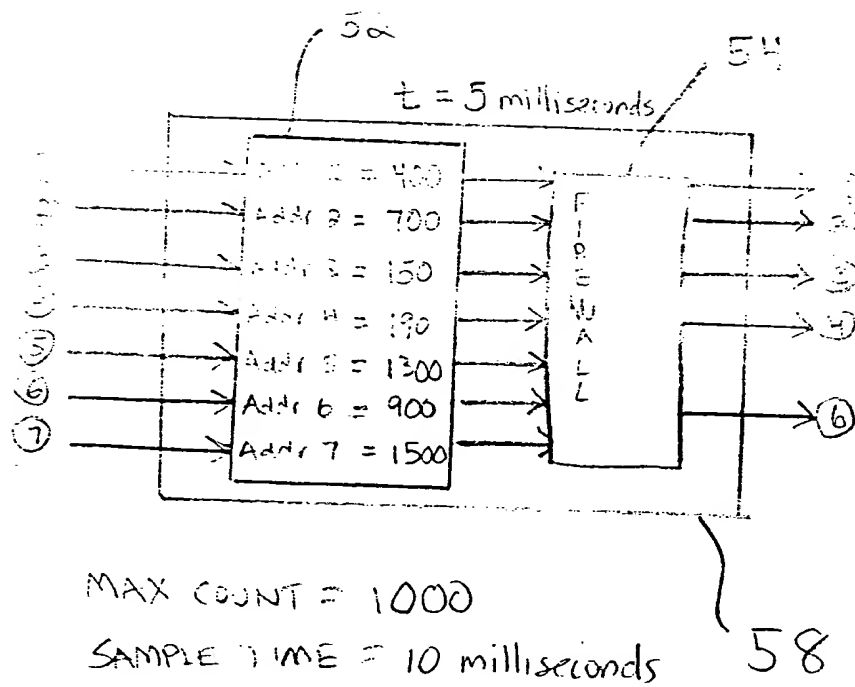 52
54
t = 5 milliseconds
= 400
Addr 2 = 700
= 150
Addr 4 = 190
Addr 5 = 1300
Addr 6 = 900
Addr 7 = 1500
FIREWALL
5
6
7
2
3
4
6
MAX COUNT = 1000
SAMPLE TIME = 10 milliseconds
58